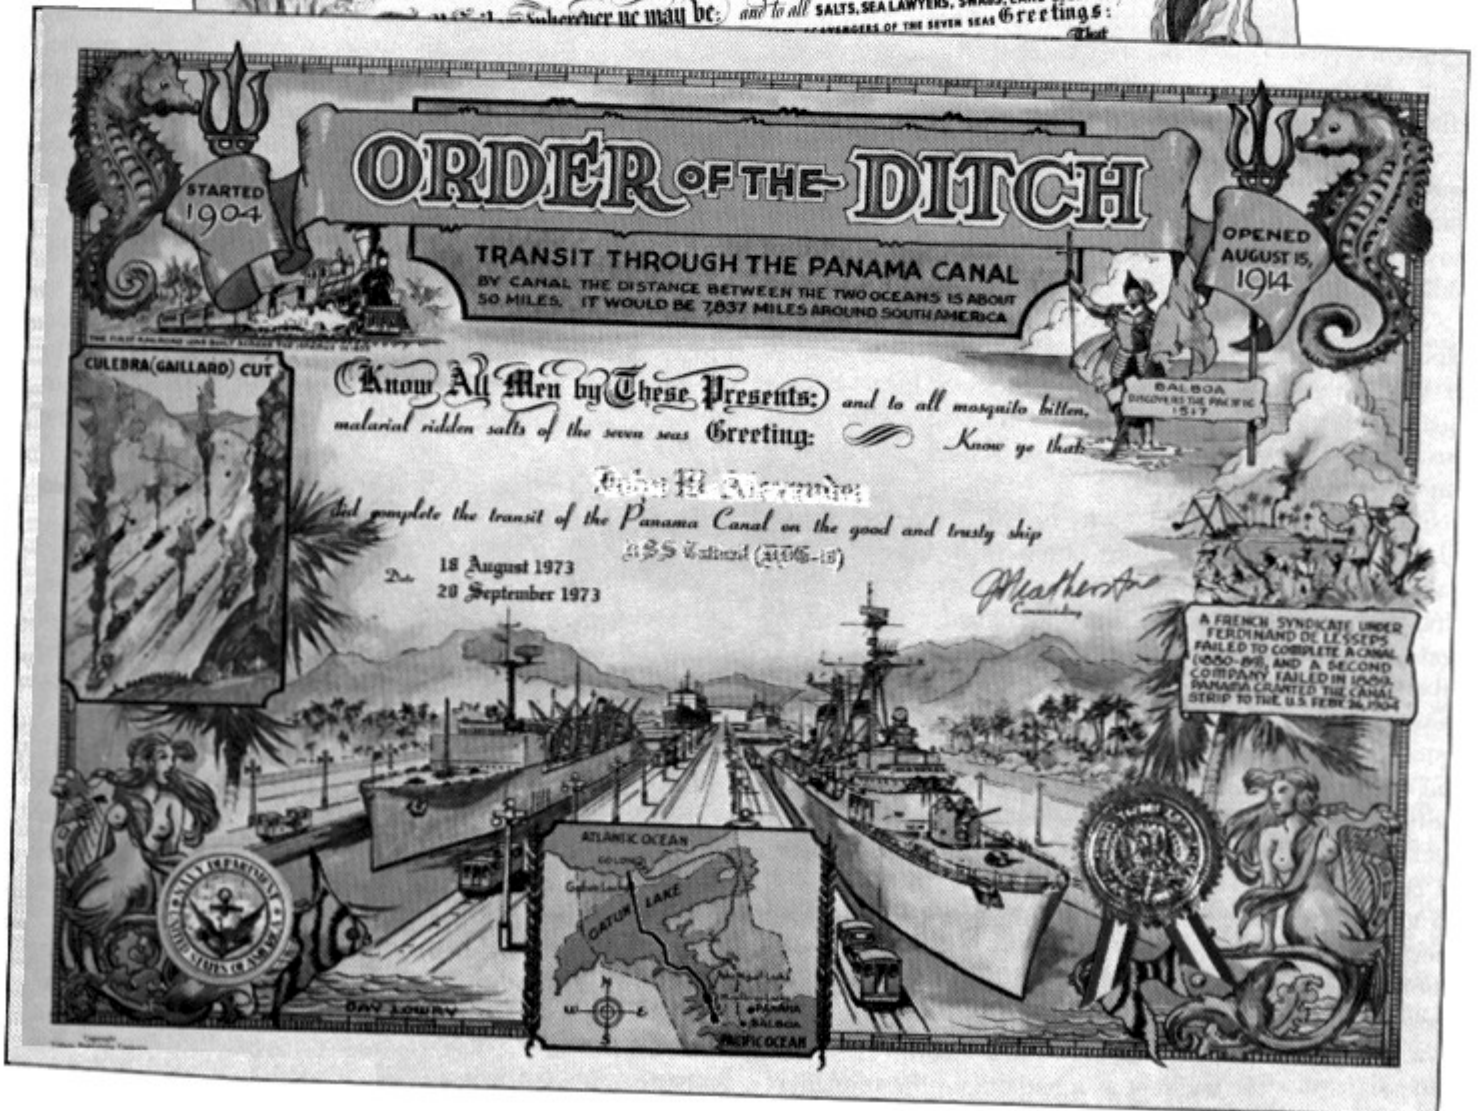 Wherever he may be: and to all SALTS, SEA LAWYERS,
SCAVENGERS OF THE SEVEN SEAS Greetings:
That
STARTED
1904
ORDER OF THE DITCH
OPENED
AUGUST 15,
1914
TRANSIT THROUGH THE PANAMA CANAL
BY CANAL THE DISTANCE BETWEEN THE TWO OCEANS IS ABOUT
50 MILES. IT WOULD BE 7,837 MILES AROUND SOUTH AMERICA
THE FIRST RAILROAD WAS BUILT ACROSS THE
CULEBRA (GAILLARD) CUT
BALBOA
DISCOVERS THE PACIFIC
1517
Know All Men by These Presents: and to all mosquito bitten,
malarial ridden salts of the seven seas Greeting: Know ye that:
did complete the transit of the Panama Canal on the good and trusty ship
USS
Date 18 August 1973
20 September 1973
Commanding
A FRENCH SYNDICATE UNDER
FERDINAND DE LESSEPS
FAILED TO COMPLETE A CANAL
(1880-89), AND A SECOND
COMPANY FAILED IN 1889.
PANAMA GRANTED THE CANAL
STRIP TO THE U.S. FEB'Y. 26, 1904
NAVY DEPARTMENT
UNITED STATES OF AMERICA
ATLANTIC OCEAN
COLON
Gatun Locks
GATUN LAKE
N
W E
S
PANAMA
BALBOA
PACIFIC OCEAN
BAY LOWRY
Copyright